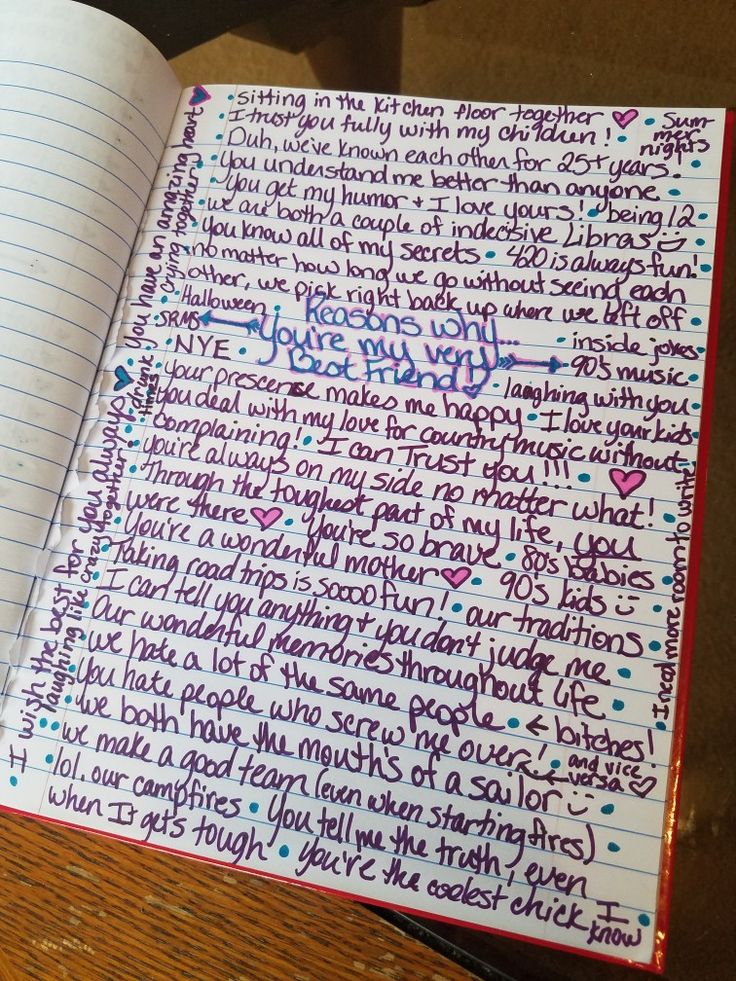 • sitting in the kitchen floor together ♥ • Sum-
mer
nights
• I trust you fully with my children! •
Duh, we've known each other for 25+ years. •
you understand me better than anyone •
you get my humor + I love yours! • being 12 •
we are both a couple of indecisive Libras ☺ •
you know all of my secrets • 420 is always fun! •
no matter how long we go without seeing each
other, we pick right back up where we left off •
Halloween •
Reasons why...
You're my very
Best Friend
SRMS
• NYE •
• inside jokes •
90's music •
• laughing with you •
your prescence makes me happy • I love your kids •
you deal with my love for country music without
complaining! • I can Trust you!!! • ♥
you're always on my side no matter what! •
Through the toughest part of my life, you
were there ♥ • You're so brave • 80's Babies •
You're a wonderful mother ♥ • 90's kids ☺ •
Taking road trips is soooo fun! • our traditions •
I can tell you anything + you don't judge me •
Our wonderful memories throughout life •
we hate a lot of the same people • ← bitches! •
You hate people who screw me over! • and vice
versa ♥
we both have the mouth's of a sailor ☺ •
we make a good team (even when starting fires)
lol. our campfires • You tell me the truth, even
when It gets tough • you're the coolest chick I
know •
• I wish the best for you always ♥ • You have an amazing heart ♥
• laughing like crazy together • drunk
times • crying together •
• I need more room to write